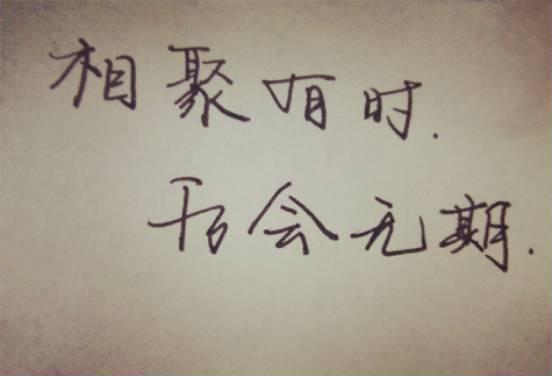 相聚有时.
后会无期.